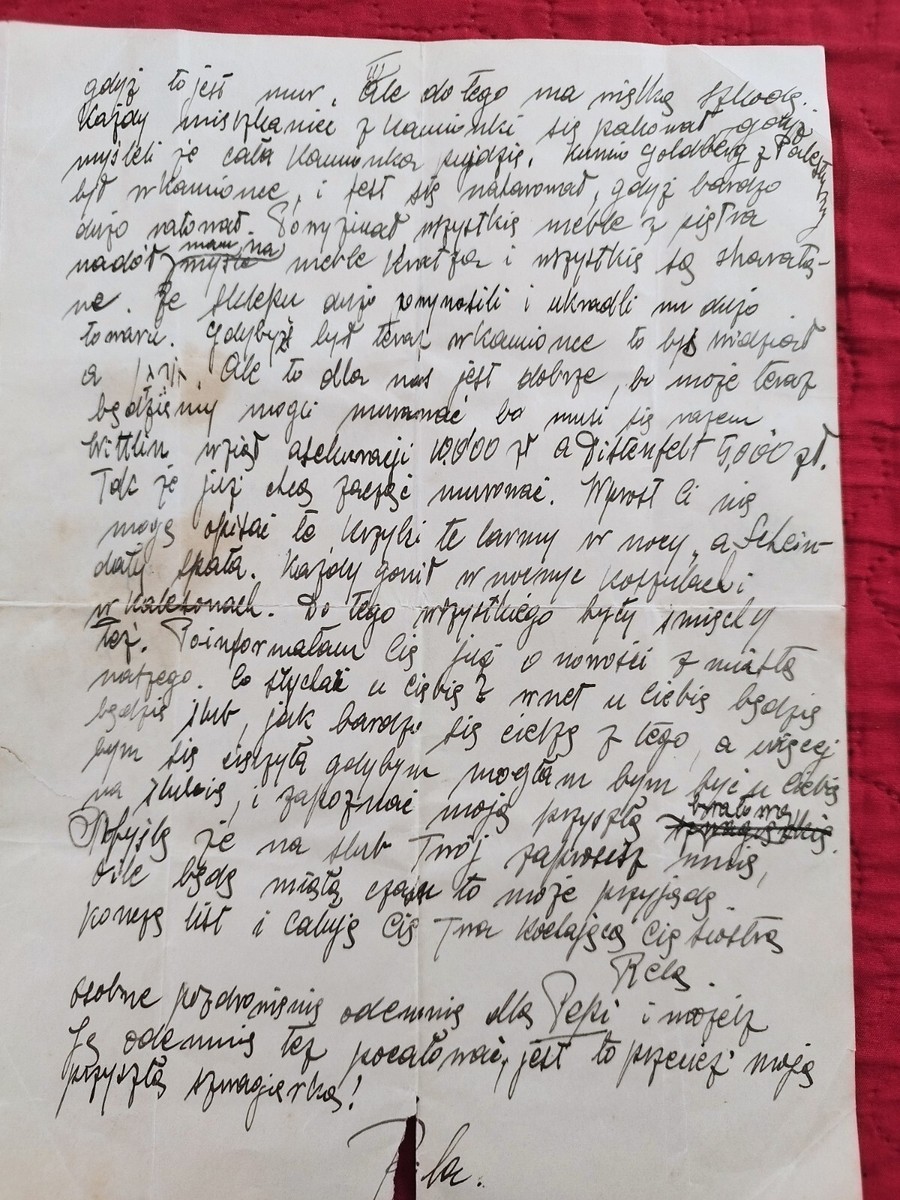 III
gdyż to jest mur. Ale do tego ma wielką szkodę.
Każdy mieszkaniec z Kamionki się pakował gdyż
myśleli że cała Kamionka pójdzie. Kunio Goldberg z Palestyny
był w Kamionce, i jest się natarował, gdyż bardzo
dużo ratował. Powyrzucał wszystkie meble z piętra
nadół, mam na myśli meble Kratza i wszystkie są skarata-
ne. Ze sklepu dużo powynosili i ukradli mu dużo
towaru. Gdybyś był teraz w Kamionce to byś widział
a. Ale to dla nas jest dobrze, bo może teraz
będziemy mogli murować bo musi się razem
Wittlin wziął asekuracji 10.000 zł a Distenfelt 5,000 zł.
Tak że już chcą zacząć murować. Wprost Ci nie
mogę opisać te krzyki te larmy w nocy, a Schein-
dały spała. Każdy gonił w nocnyc koszulach i
w kalesonach. Do tego wszystkiego były śmiechy
też. Poinformałam Cię już o nowości z miasta
naszego. Co słychać u Ciebie? wnet u Ciebie będzie
będzie ślub, jak bardzo się cieszę z tego, a więcej
bym się cieszyła gdybym mogłam bym być u Ciebie
na ślubie, i zapoznać moją przyszłą bratową
Myślę że na ślub Twój zaprosisz mnie,
oile będę miała czasu to może przyjadę.
Kończę list i całuję Cię Twa kochająca Cię siostra
Rela.
osobne pozdrowienie odemnie dla Pepi i możesz
Ją odemnie też pocałować, jest to przecież moja
przyszła szwagierka!
Rela.